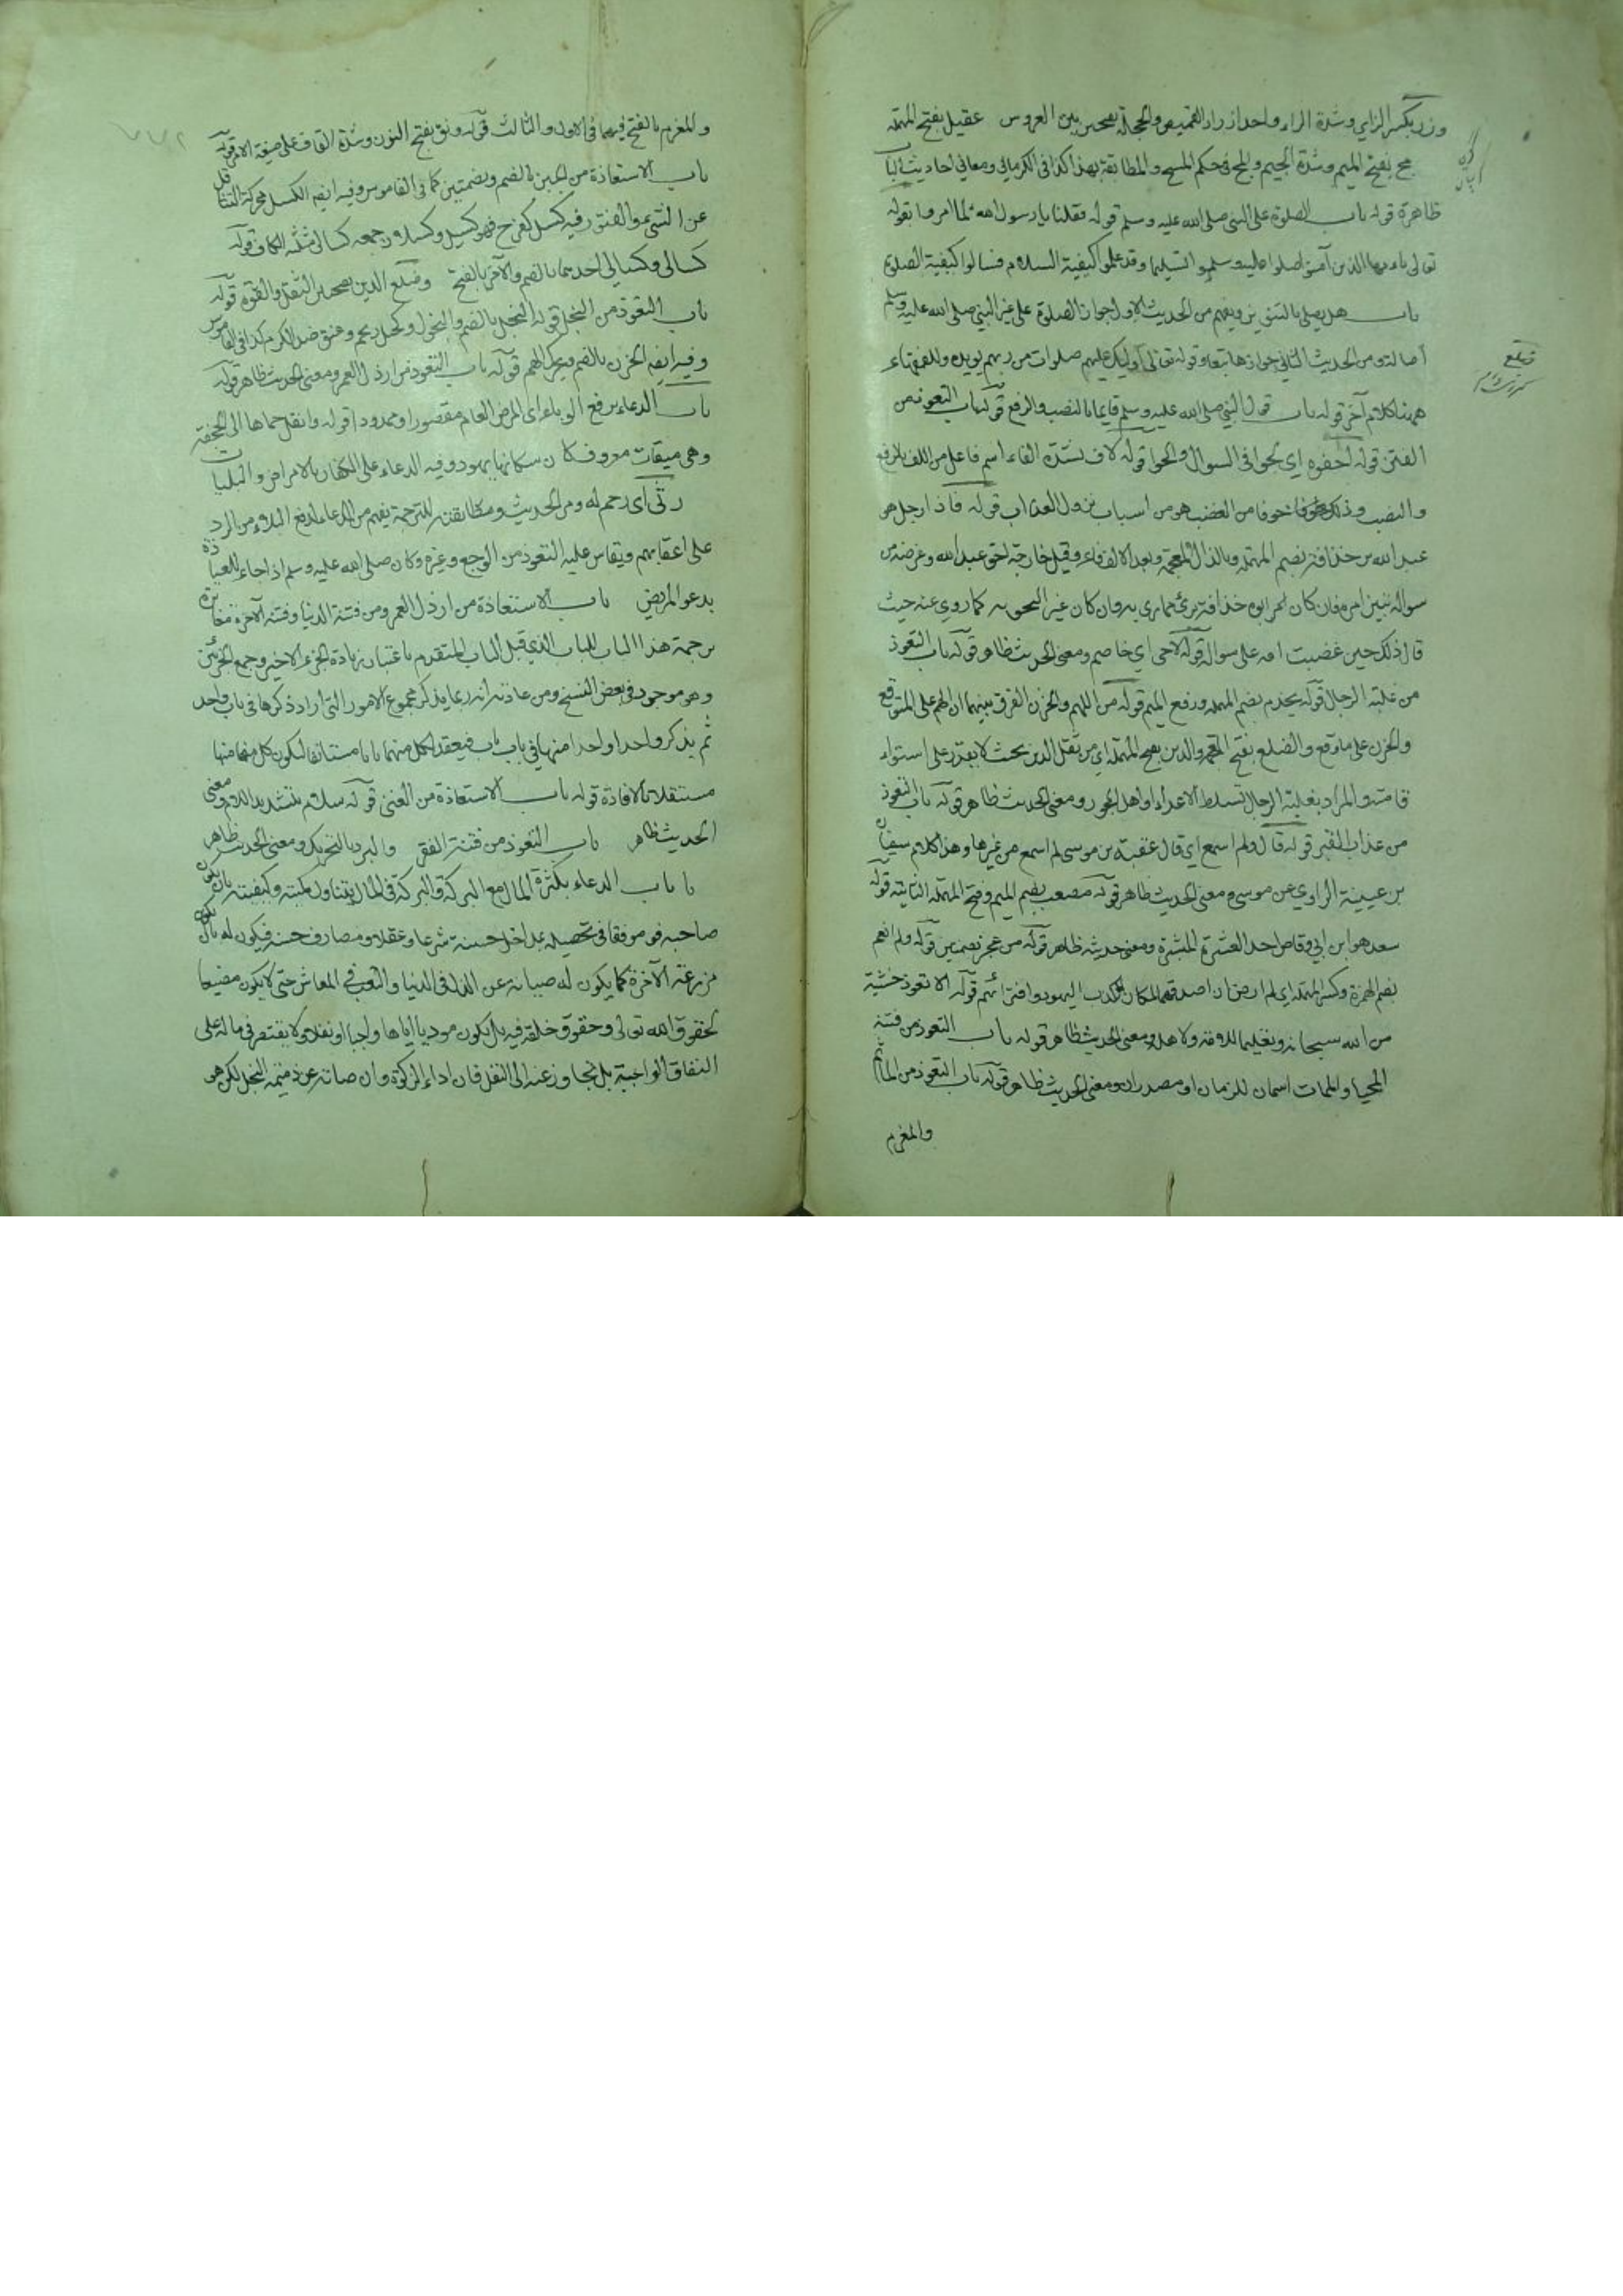 وزر بكسر الزاي وشدة الراء واحد ازرار القميص والحجلة بفتحتين بيت العروس عقيل بفتح المهملة
مج بفتح الميم وشدة الجيم والمج في حكم المسح والمطابقة بهذا كذا في الكرماني ومعاني احاديث الباب
ظاهرة قوله باب الصلوة على النبي صلى الله عليه وسلم قوله فقلنا يا رسول الله لما امروا بقوله
تعالى يا ايها الذين آمنوا صلوا عليه وسلموا تسليما وقد علموا كيفية السلام فسالوا كيفية الصلوة
باب هل يصلى بالتنوين ويفهم من الحديث الاول جواز الصلوة على غير النبي صلى الله عليه وسلم
اصالة ومن الحديث الثاني جوازها تبعا وقوله تعالى اوليك عليهم صلوات من ربهم يويده وللفقهاء
ههنا كلام آخر قوله باب قول النبي صلى الله عليه وسلم بالنصب والرفع قوله باب التعوذ من
الفتن قوله احفوه اي الحوا في السوال والحوا قوله لاف بشدة الفاء اسم فاعل من اللف بالرفع
والنصب وذلك خوفا من الغضب هو من اسباب نزول العذاب قوله فاذا رجل هو
عبد الله بن حذافة بضم المهملة وبالذال المعجمة وبعد الالف فاء وقيل خارجة اخو عبد الله وغرضه من
سواله تبيين امره فان كان ابوه حذافة بري مما رمي به وان كان غير الحق به كما روي عنه حيث
قال ذلك حين غضبت امه على سواله قوله لاحى اي خاصم ومعنى الحديث ظاهر قوله باب التعوذ
من غلبة الرجال قوله يخدم بضم المهملة ورفع الميم قوله من الهم والحزن الفرق بينهما ان الهم على المتوقع
والحزن على ما وقع والضلع بفتح المعجمة والدين بفتح المهملة اي من ثقل الدين بحيث لا يقدر على استواء
قامته والمراد بغلبة الرجال تسلط الاعداء او اهل الجور ومعنى الحديث ظاهر قوله باب التعوذ
من عذاب القبر قوله قال ولم اسمع اي قال عقبة بن موسى لم اسمع من غيرها وهذا كلام سفيان
بن عيينة الراوي عن موسى ومعنى الحديث ظاهر قوله مصعب بضم الميم وفتح المهملة الثانية قوله
سعد هو ابن ابي وقاص احد العشرة المبشرة ومعنى حديثه ظاهر قوله من عجز قوله ولم انعم
بضم الهمزة وكسر المهملة اي لم ارض ان اصدقهما لمكان كذب اليهود وافترائهم قوله الا تعوذ خشية
من الله سبحانه وتعليما للامة ومعنى الحديث ظاهر قوله باب التعوذ من فتنة
المحيا والممات اسمان للزمان او مصدران ومعنى الحديث ظاهر قوله باب التعوذ من الماثم
والمغرم
ضلع
والمغرم بالفتح فيهما في الاول والثالث قوله ونق بفتح النون وشدة القاف على صيغة الامر قوله
باب الاستعاذة من الجبن بالضم وبضمتين كما في القاموس وفيه ايضا الكسل محركة التثاقل
عن الشيء والفتور فيه كسل كفرح فهو كسل وكسلان جمعه كسالى مثلثة الكاف قوله
كسالى وكسالى احدهما بالضم والآخر بالفتح وضلع الدين الثقل والقوة قوله
باب التعوذ من البخل قوله البخل بالضم والبخول وكجبل ونجم وعنق ضد الكرم كذا في القاموس
وفيه ايضا الحزن بالضم ويحرك الهم قوله باب التعوذ من ارذل العمر ومعنى الحديث ظاهر قوله
باب الدعاء برفع الوباء اي المرض العام مقصورا وممدودا قوله وانقل حماها الى الجحفة
وهي ميقات معروف كان سكانها يهود وفيه الدعاء على الكفار بالامراض والبليات
رثى اي رحم له ومن الحديث ومطابقته للترجمة يفهم من الدعاء لدفع البلاء من الرد
على اعقابهم ويقاس عليه التعوذ من الوجع وغيره وكان صلى الله عليه وسلم اذا جاء للعيادة
يدعو للمريض باب الاستعاذة من ارذل العمر ومن فتنة الدنيا وفتنة الآخرة مغايرة
ترجمة هذا الباب للباب الذي قبل الباب المتقدم باعتبار زيادة الجزء الاخير وجمع الجزئين
وهو موجود في بعض النسخ ومن عادته انه ربما يذكر مجموع الامور التي اراد ذكرها في باب واحد
ثم يذكر واحدا واحدا منها في باب باب فيعقد لكل منهما بابا مستانفا ليكون كل منهما
مستقلا بالافادة قوله باب الاستعاذة من الغنى قوله سلام بتشديد اللام ومعنى
الحديث ظاهر باب التعوذ من فتنة الفقر والبرد بالتحريك ومعنى الحديث ظاهر
باب الدعاء بكثرة المال مع البركة والبركة في المال يتناول كميته وكيفيته بان يكون
صاحبه موفقا في تحصيله بمداخل حسنة شرعا وعقلا ومصارف حسنة فيكون له بان يكون
مزرعة الآخرة كما يكون له صيانة عن الذل في الدنيا والتعب في المعاش حتى لا يكون مضيعا
لحقوق الله تعالى وحقوق خلقه فيه بل يكون موديا اياها واجبا او نفلا ولا يقتصر في ماله على
النفاق الواجبة بل يتجاوز عنه الى النفل فان اداء الزكوة وان صانه عن ذميمة البخل لكن هو